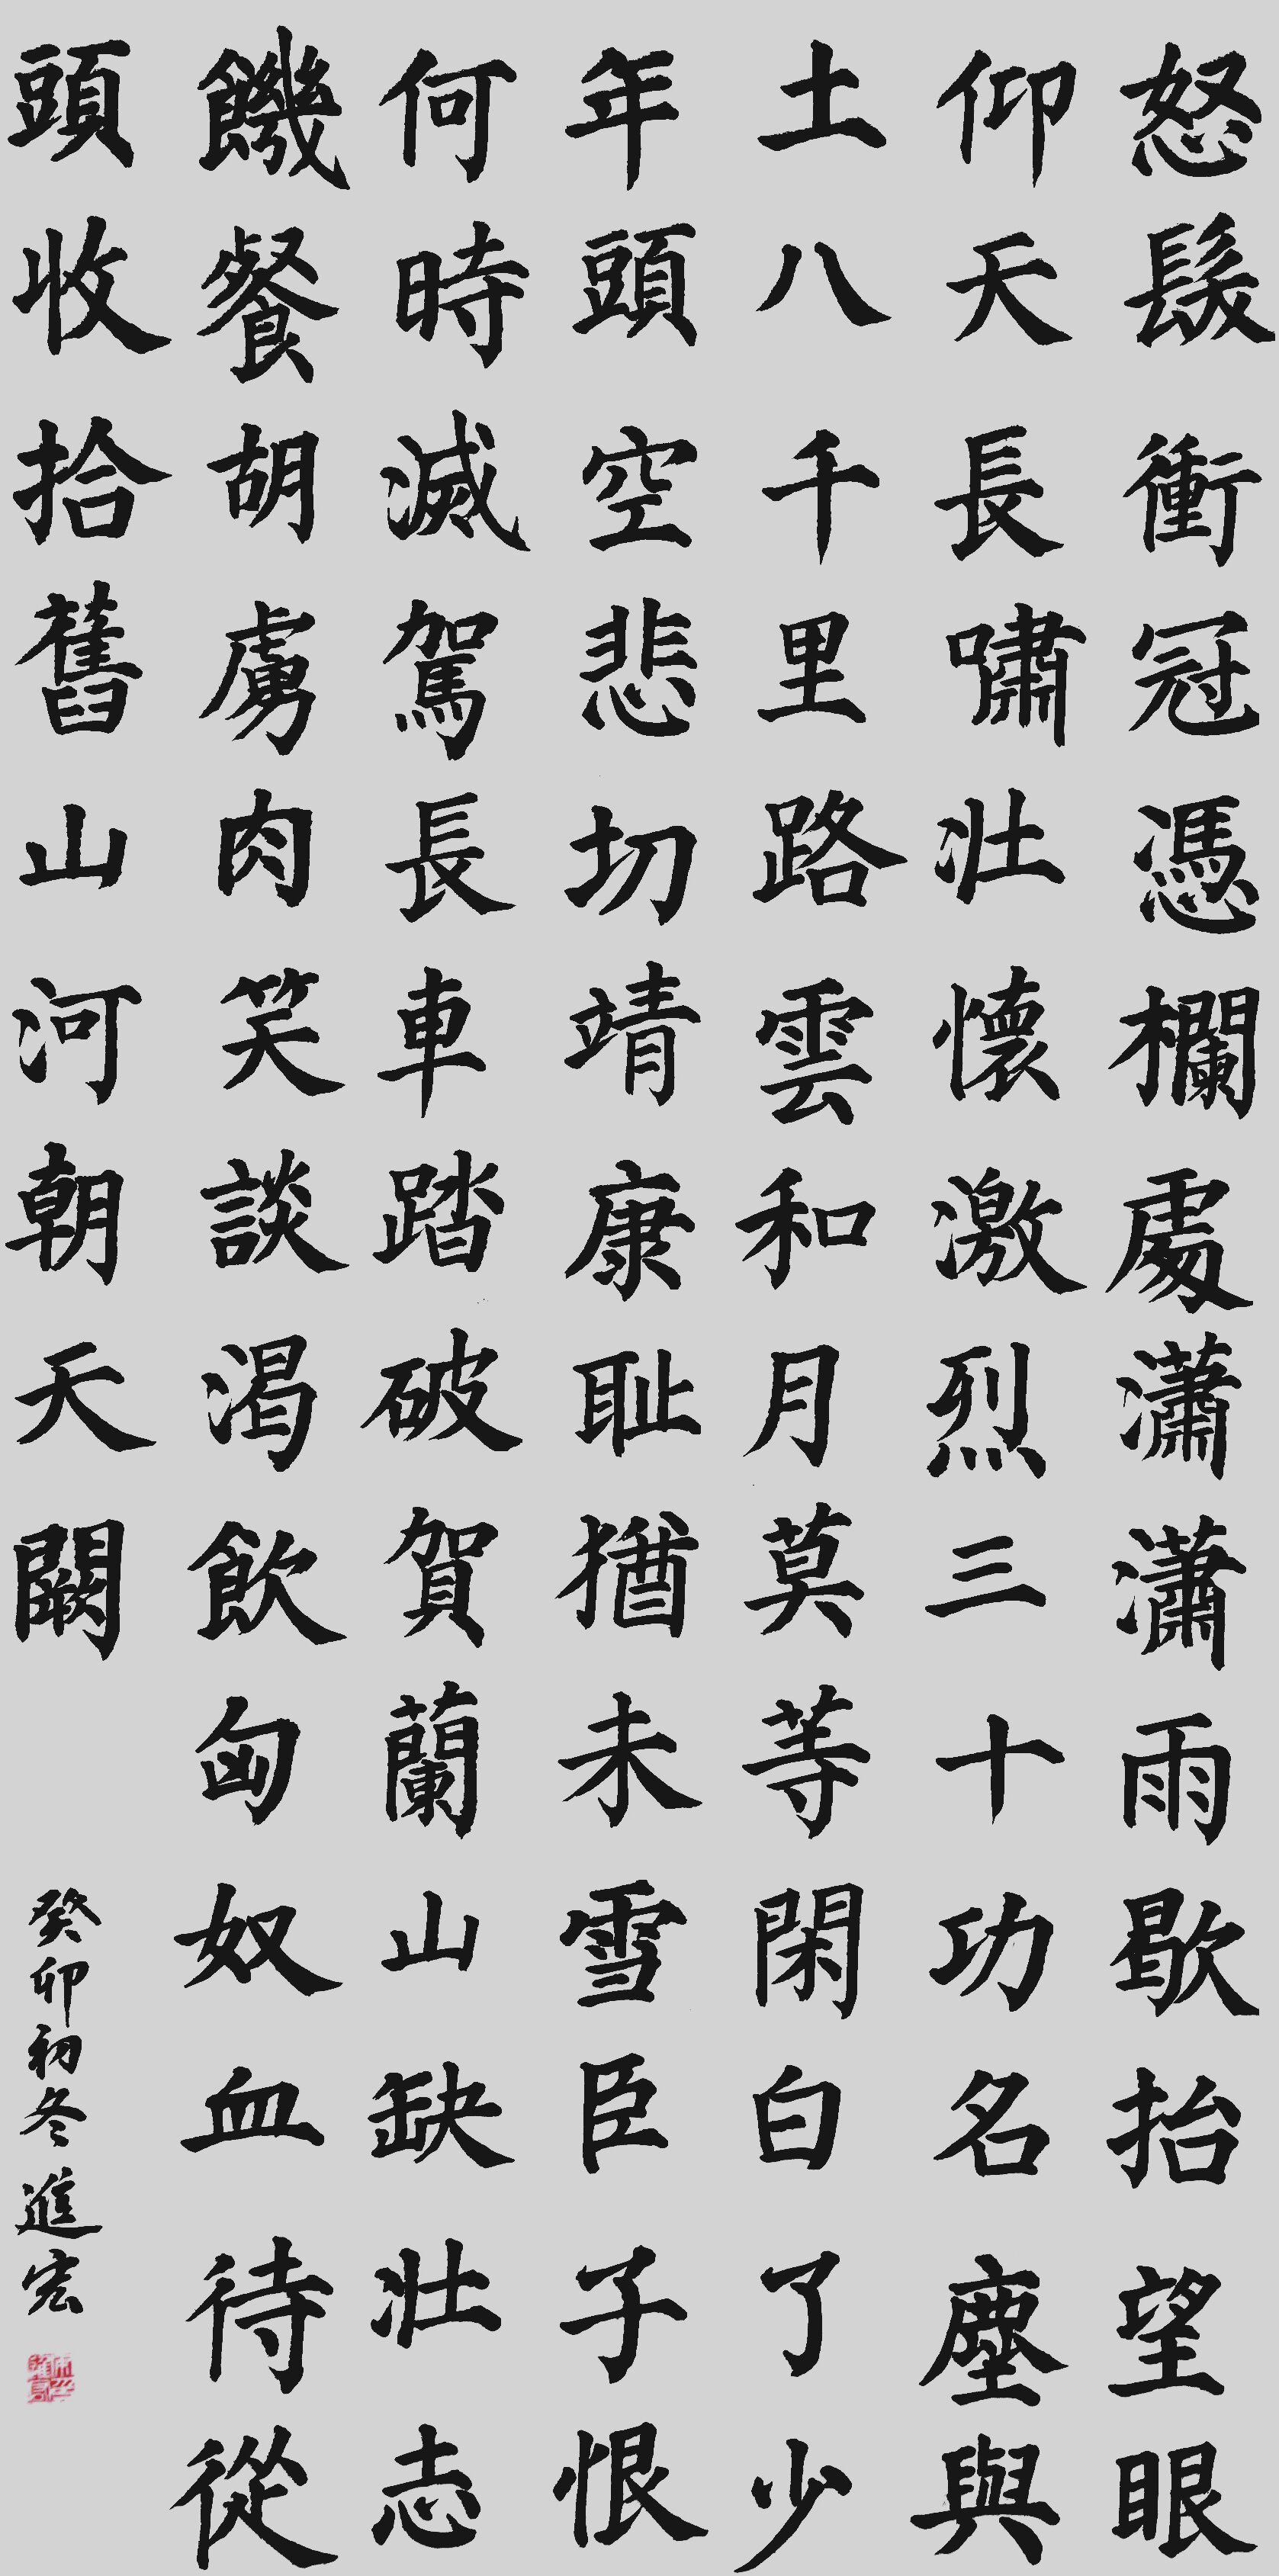 怒髮衝冠憑欄處瀟瀟雨歇抬望眼
仰天長嘯壯懷激烈三十功名塵與
土八千里路雲和月莫等閑白了少
年頭空悲切靖康耻猶未雪臣子恨
何時滅駕長車踏破賀蘭山缺壯志
饑餐胡虜肉笑談渴飲匈奴血待從
頭收拾舊山河朝天闕
癸卯初冬進宏